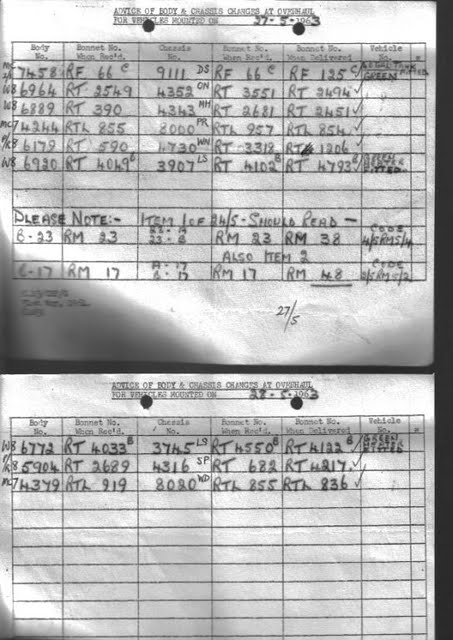 ADVICE OF BODY & CHASSIS CHANGES AT OVERHAUL
FOR VEHICLES MOUNTED ON 27-5-1963
Body No. Bonnet No. When Rec'd. Chassis No. Bonnet No. When Recv'd. Bonnet No. When Delivered Vehicle No.
7458 RF 66 C 9111 DS RF 66 C RF 125 C GREEN
W8 6964 RT 2549 4352 ON RT 3551 RT 2494 ✓
W8 6889 RT 390 4343 MH RT 2681 RT 2451 ✓
MC7 4244 RTL 855 8000 PR RTL 957 RTL 854 ✓
6179 RT 590 4730 WN RT 3318 RT 1206 ✓
W8 6920 RT 4049 B 3907 LS RT 4102 B RT 4793 B ✓ GREEN FITTED
PLEASE NOTE:- ITEM 1 OF 24/5 - SHOULD READ -
B-23 RM 23 RM 23 RM 38 CODE 4/5RM5/4
ALSO ITEM 2
C-17 RM 17 RM 17 RM 48 CODE
27/5
ADVICE OF BODY & CHASSIS CHANGES AT OVERHAUL
FOR VEHICLES MOUNTED ON 28-5-1963
Body No. Bonnet No. When Rec'd. Chassis No. Bonnet No. When Recv'd. Bonnet No. When Delivered Vehicle No.
W8 6772 RT 4033 B 3745 LS RT 4550 B RT 4122 B ✓ GREEN FITTED
5904 RT 2689 4316 SP RT 682 RT 4217 ✓
MC7 4379 RTL 919 8020 WD RTL 855 RTL 836 ✓